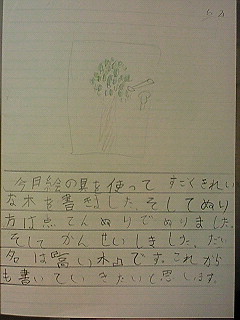 今日絵の具を使って すごくきれい
な木を書きました。そしてぬり
方は点てんぬりでぬりました。
そして かんせいしました。だい
名は 高い木 です。これから
も書いていきたいと思います。